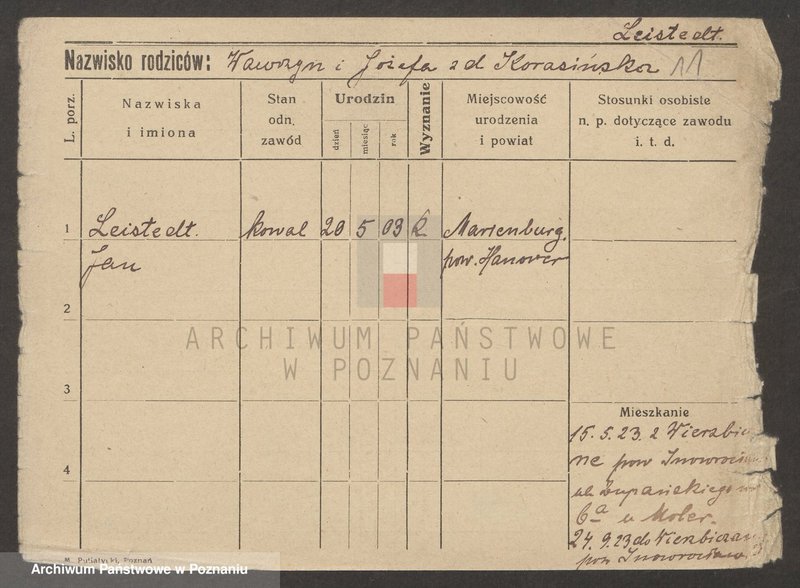 Leistedt.
Nazwisko rodziców: Wawrzyn i Józefa z d Korasińska 11
L. porz.
Nazwiska
i imiona
Stan
odn.
zawód
Urodzin
dzień
miesiąc
rok
Wyznanie
Miejscowość
urodzenia
i powiat
Stosunki osobiste
n. p. dotyczące zawodu
i. t. d.
1 Leistedt. kowal 20 5 03 k Marienburg.
Jan pow. Hanover
2
ARCHIWUM PAŃSTWOWE
W POZNANIU
3
Mieszkanie
15. 5. 23. z Wierzbi
ne pow Inowroc
4
ul. Żupańskiego
6a u Moler.
24. 9. 23 do Wierzbiczan
pow Inowrocław
M. Putiatycki, Poznań
Archiwum Państwowe w Poznaniu